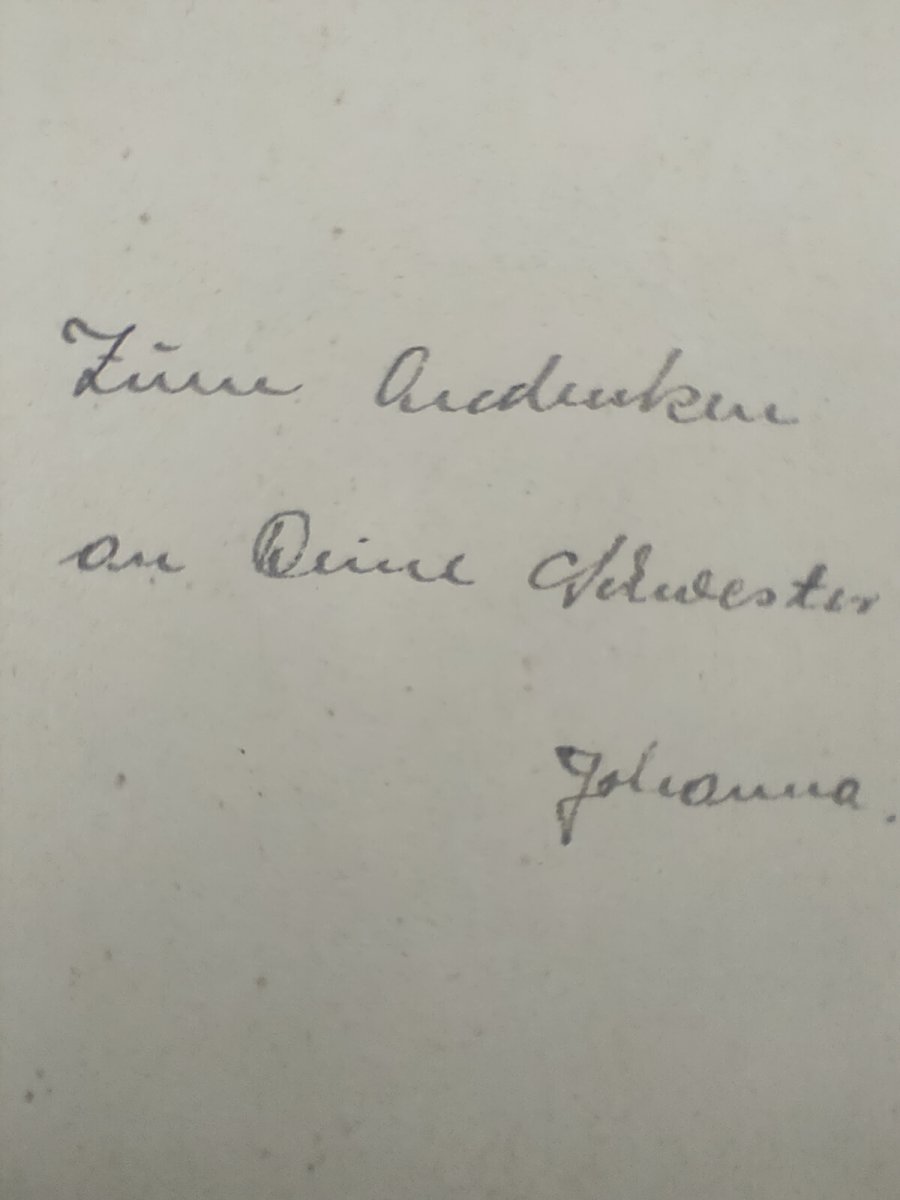 Zum Andenken
an Deine Schwester
Johanna.